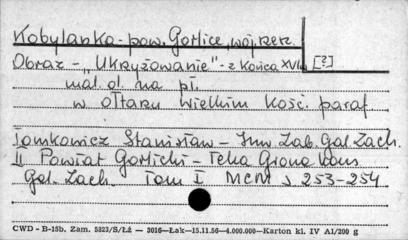 Kobylanka - pow. Gorlice, wój. rzesz.
Obraz - „Ukrzyżowanie" - z końca XVII w [?]
mal. ol. na pł.
w ołtarzu wielkim kośc. paraf
Tomkowicz Stanisław - Inw. Zab. Gal. Zach.
II Powiat Gorlicki - Teka Grona Kons
Gal. Zach. Tom I MCM s 253-254
CWD - B-15b. Zam. 5323/S/Łż — 3016—Łak—15.11.56—4.000.000—Karton kl. IV A1/200 g